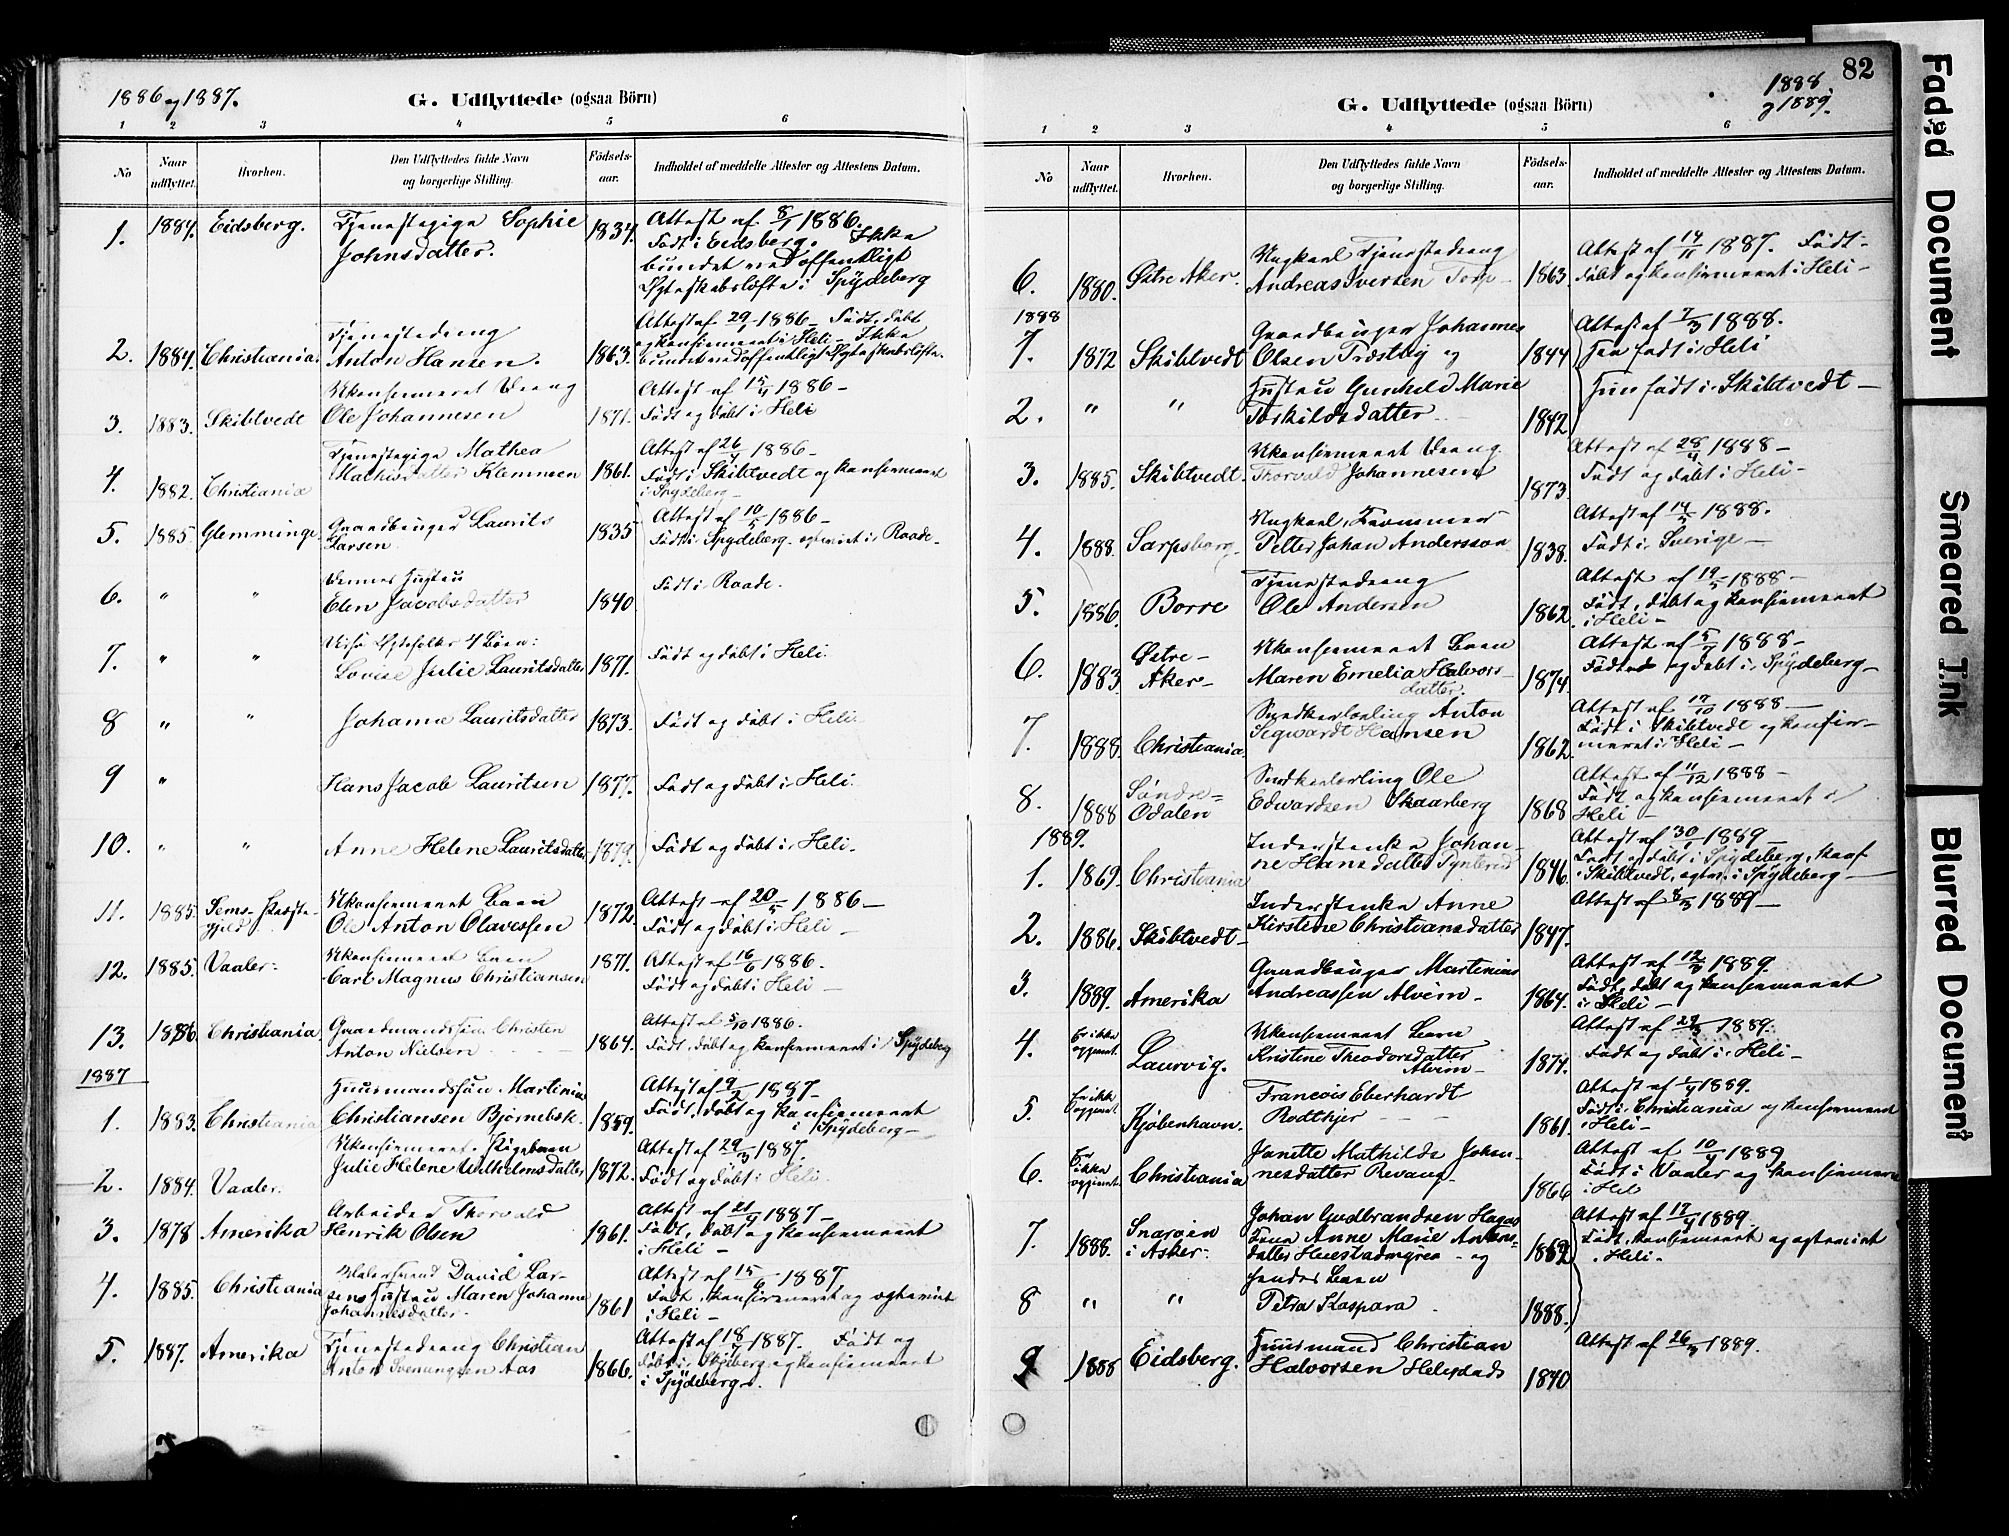 1886 og 1887.
G. Udflyttede (ogsaa Börn)
1 2 3 4 5 6
No
Naar udflyttet.
Hvorhen.
Den Udflyttedes fulde Navn og borgerlige Stilling.
Födselsaar.
Indholdet af meddelte Attester og Attestens Datum.
1. 1884. Eidsberg. Tjenestepige Sophie 1834. Attest af 8/1 1886.
Johnsdatter. Født i Eidsberg. Ikke
bundet ved offentligt
Ægteskabsløfte i Spydeberg
2. 1884. Christiania. Tjenestedreng 1863. Attest af 29/1 1886 – Født, døbt
Anton Hansen. og konfirmeret i Heli – Ikke
bundet ved offentligt Ægteskabsløfte.
3. 1883. Skibtvedt Ukonfirmeret Dreng 1871. Attest af 15/4 1886 –
Ole Johannesen Født og døbt i Heli
4. 1882. Christiania Tjenestepige Mathea 1861. Attest af 26/4 1886 –
Mathisdatter Klemmsen Født i Skibtvedt og konfirmeret
i Spydeberg –
5. 1885. Glemminge Gaardbruger Laurits 1835 Attest af 10/5 1886 –
Larsen. Født i Spydeberg, ogteviet i Raade –
6. " " Dennes Hustru 1840 Født i Raade.
Elen Jacobsdatter
7. " " Disse Ægtefolks 4 Børn: 1871. Født og døbt i Heli
Lovise Julie Lauritsdatter
8 " " Johanne Lauritsdatter 1873. Født og døbt i Heli.
9 " Hans Jacob Lauritsen 1877. Født og døbt i Heli.
10. " " Anne Helene Lauritsdatter 1879. Født og døbt i Heli.
11. 1885. Sems Præstegjeld Ukonfirmeret Barn 1872. Attest af 20/5 1886 –
Ole Anton Olavessen Født og døbt i Heli –
12. 1885. Vaaler. Ukonfirmeret Barn 1871. Attest af 16/6 1886.
Carl Magnus Christiansen Født og døbt i Heli –
13. 1886. Christiania Gaardmandssøn Christen 1864. Attest af 5/10 1886.
Anton Nielsen Født, døbt og konfirmeret i Spydeberg
1887
1. 1883. Christiania Huusmandssøn Martinius 1859. Attest af 9/2 1887 –
Christiansen Bjørnebek. Født, døbt og konfirmeret
i Spydeberg –
2. 1884. Vaaler. Ukonfirmeret Pigebarn 1872. Attest af 29/3 1887.
Julie Helene Wilhelmsdatter Født og døbt i Heli.
3. 1878 Amerika Arbeider Thorvald 1861. Attest af 21/4 1887 –
Henrik Olsen Født, døbt og konfirmeret
i Heli –
4. 1885. Christiania David Larsens Hustru Maren Johanne 1861 Attest af 15/6 1887.
Johannesdatter. Født, konfirmeret og ogteviet
i Heli –
5. 1887. Amerika Tjenestedreng Christian 1866. Attest af 18/7 1887. Født og
Anton Svenungsen Aas døbt i Skiberg og konfirmeret
i Spydeberg.
82
1888
og 1889.
G. Udflyttede (ogsaa Börn)
1 2 3 4 5 6
No
Naar udflyttet.
Hvorhen.
Den Udflyttedes fulde Navn og borgerlige Stilling.
Födselsaar.
Indholdet af meddelte Attester og Attestens Datum.
6. 1880. Østre Aker. Ungkarl Tjenestedreng 1863. Attest af 14/11 1887. Født
Andreas Iversen Torp døbt og konfirmeret i Heli –
1888
1. 1872 Skibtvedt Gaardbruger Johannes 1844 Attest af 7/3 1888.
Olsen Træstby og Han født i Heli
2. " " Hustru Gunhild Marie 1842 Hun født i Skibtvedt –
Torkildsdatter
3. 1885. Skibtvedt. Ukonfirmeret Dreng 1873. Attest af 28/4 1888 –
Thorvald Johannesen Født og døbt i Heli –
4. 1888. Sarpsborg. Ungkarl, Tømmermand 1838. Attest af 14/5 1888.
Petter Johan Andersson Født i Sverige –
5. 1886. Borre Tjenestedreng 1862. Attest af 19/5 1888 –
Ole Andersen Født, døbt og konfirmeret
i Heli –
6. 1883 Østre Aker – Ukonfirmeret Barn 1874. Attest af 5/7 1888 –
Maren Emelia Halvorsdatter. Født og døbt i Spydeberg –
7. 1888. Christiania. Smedkarlærling Anton 1862. Attest af 17/10 1888 –
Segwardt Hansen Født i Skibtvedt og konfirmeret i Heli –
8. 1888 Søndre Odalen Smedlærling Ole 1868 Attest af 11/12 1888 –
Edwardsen Skaarberg Født og konfirmeret i
Heli –
1889.
1. 1869. Christiania Inderstenke Johanne Hansdatter 1846. Attest af 30/1 1889 –
Født og døbt i Spydeberg, konf
i Skibtvedt, i Spydeberg –
2. 1886. Skibtvedt – Inderstenke Anne 1847. Attest af 8/3 1889 –
Kirstine Christiansdatter
3. 1889. Amerika Gaardbruger Martinius 1864. Attest af 12/3 1889.
Andreassen Alvim – Født, døbt og konfirmeret
i Heli –
4. Er ikke Laurvig. Ukonfirmeret Barn 1874. Attest af 29/3 1889.
Kristine Theodorsdatter Født og døbt i Heli –
Alvim –
5. Er ikke Kjøbenhavn. Francois Eberhardt 1861. Attest af 1/4 1889.
Rodthjer Født i Christiania og konfirmeret
i Heli –
6. Er ikke Christiania Janette Mathilde Johannesdatter Revaug – 1866 Attest af 10/4 1889
Født i Vaaler og konfirmeret
i Heli
7. 1888. Snarøen i Asker. Johan Gudbrandsen Hagas 1862 Attest af 17/4 1889.
Anne Marie Antonsdatter Huestadmyren og Født, konfirmeret og ogteviet
i Heli.
8 " " hendes Barn 1888.
Petra Kaspara
9 1888 Eidsberg. Huusmand Christian 1840 Attest af 26/4 1889.
Halvorsen
Faded Document
Smeared Ink
Blurred Document